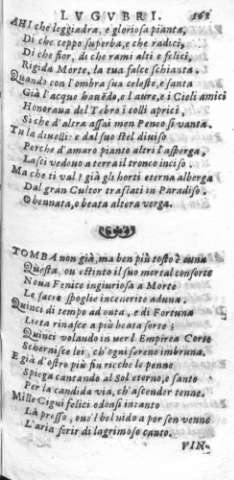 LVGVBRI. 162
AHI che leggiadra, e gloriosa pianta,
Di che ceppo superba, e che radici,
Di che fior, di che rami alti e felici,
Rigida Morte, la tua falce schianta.
Quando con l'ombra sua celeste, e santa
Già l'acque hauēdo, e l'aure, e i Cieli amici
Honoraua del Tebro i colli aprici,
Sì che d'altra assai men Peneo si vanta.
Tu la diuelli: e dal suo stel diuiso
Perche d'amaro pianto altri l'asperga,
Lasci vedouo a terra il tronco inciso.
Ma che ti val? già gli horti eterna alberga
Dal gran Cultor traslati in Paradiso.
O bennata, o beata altera verga.
TOMBA non già, ma ben più tosto è cuna
Questa, ou' estinto il suo mortal consorte
Noua Fenice ingiuriosa a Morte
Le sacre spoglie incenerite aduna.
Quinci di tempo ad onta, e di Fortuna
Lieta rinasce a più beata sorte;
Quinci volando in uer l'Empirea Corte
Scuernisce lei, ch'ogni sereno imbruna.
E già d'ostro più fin ricche le penne
Spiega cantando al Sol eterno, e santo
Per la candida via, ch'ascender tenne.
Mille Cigni felici odonsi intanto
Là presso, oue'l bel nido a por sen venne
L'aria ferir di lagrimoso canto.
VIN-